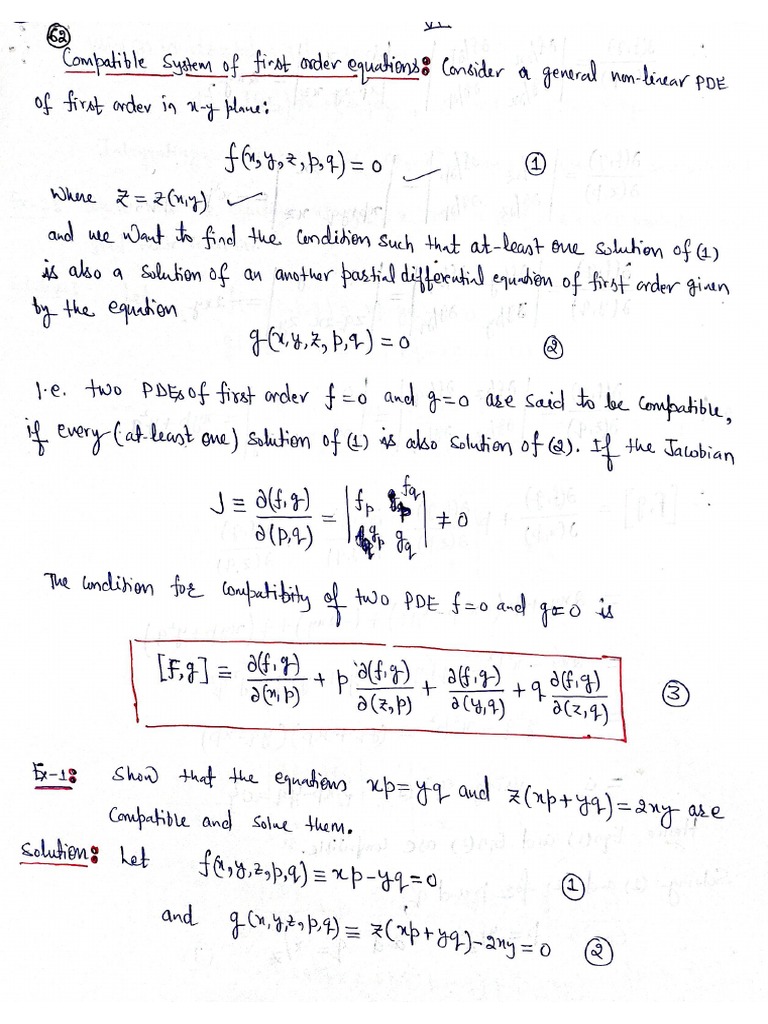 62
Compatible System of first order equations: Consider a general non-linear PDE
of first order in x-y plane:
f(x,y,z,p,q) = 0 ✓ ①
where z = z(x,y) ✓
and we want to find the condition such that at-least one solution of (1)
is also a solution of an another partial differential equation of first order given
by the equation
g(x,y,z,p,q) = 0 ②
i.e. two PDEs of first order f=0 and g=0 are said to be compatible,
if every (at-least one) solution of (1) is also solution of (2). If the Jacobian
J ≡ ∂(f,g)/∂(p,q) = |f_p f_q; g_p g_q| ≠ 0
The condition for compatibity of two PDE f=0 and g=0 is
[F,g] ≡ ∂(f,g)/∂(x,p) + p ∂(f,g)/∂(z,p) + ∂(f,g)/∂(y,q) + q ∂(f,g)/∂(z,q) ③
Ex-1: Show that the equations xp=yq and z(xp+yq)=2xy are
Compatible and solve them.
Solution: Let f(x,y,z,p,q) ≡ xp-yq=0 ①
and g(x,y,z,p,q) ≡ z(xp+yq)-2xy=0 ②